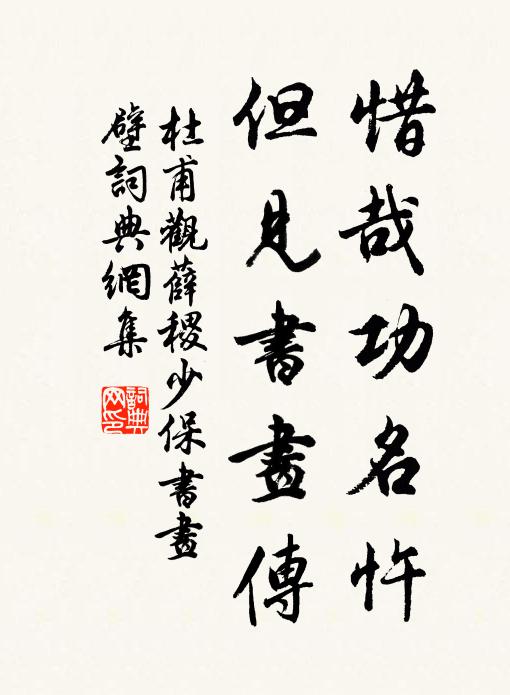 惜哉功名忤
但見書畫傳
杜甫觀薛稷少保書畫
壁詞典網集
詞典网印